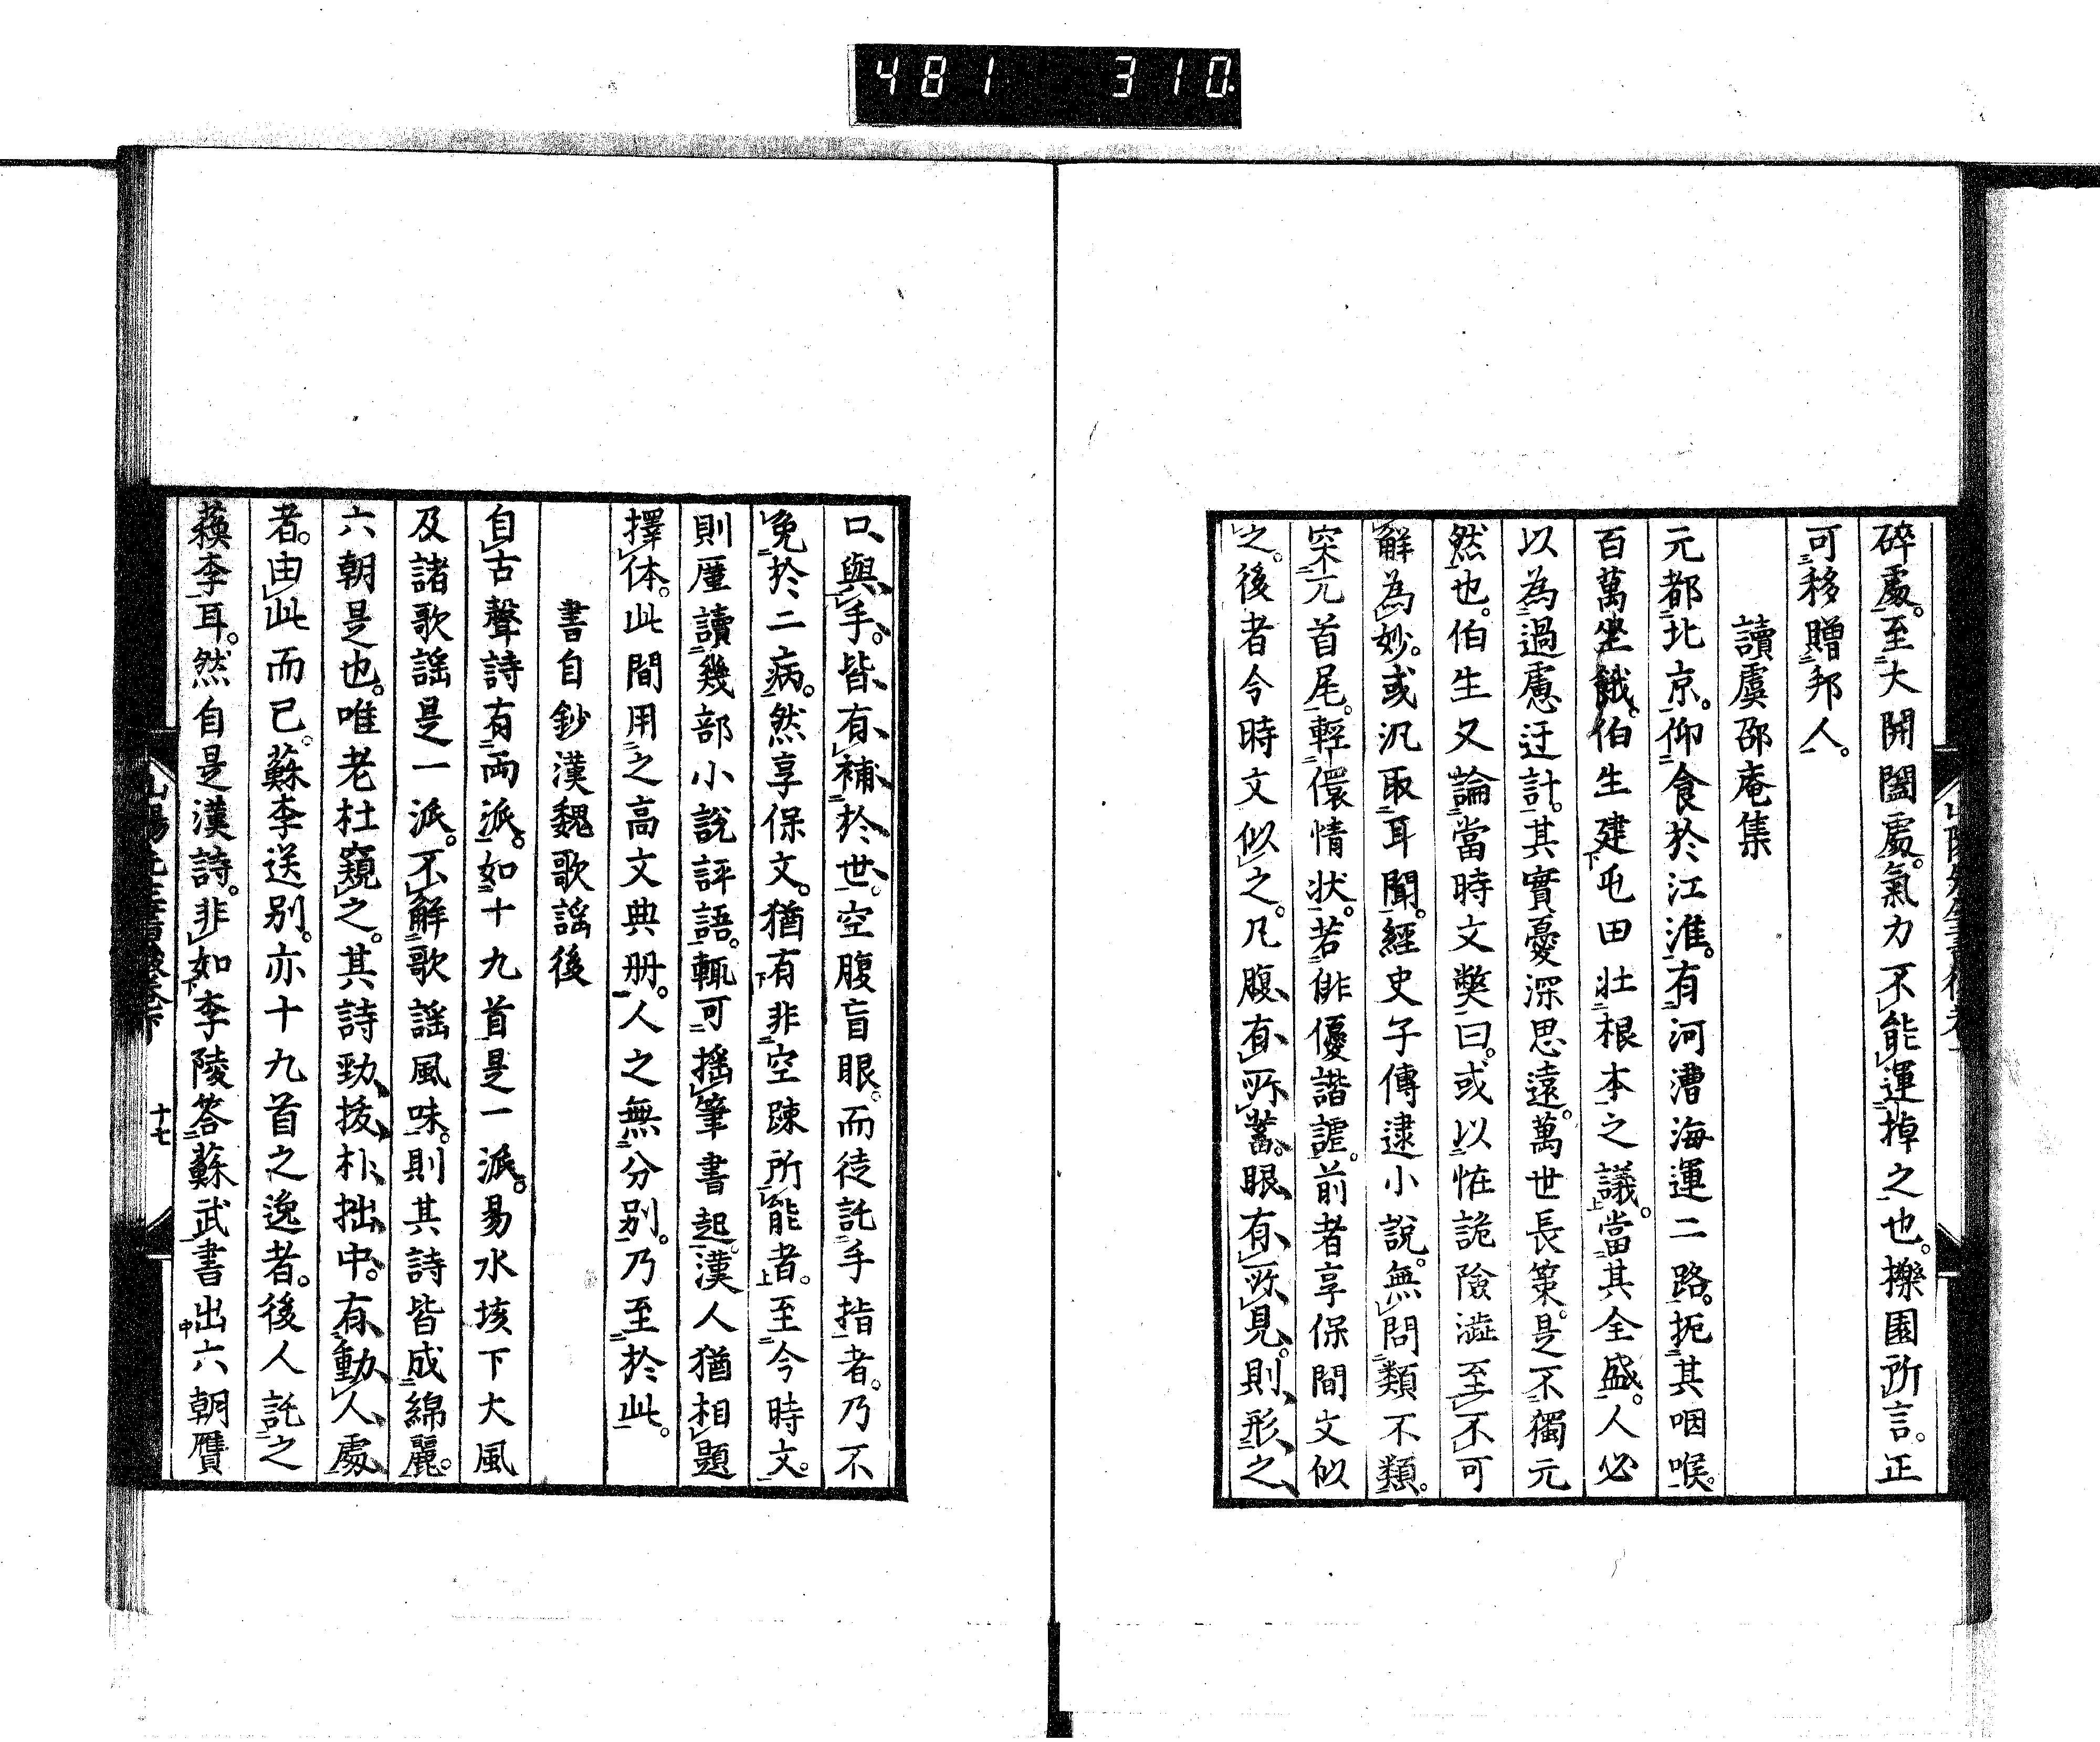 481 310
碎處。至大開闔處。氣力不能運掉之也。櫟園所言。正
可移贈邦人。
讀虞邵庵集
元都北京。仰食於江淮。有河漕海運二路。扼其咽喉。
百萬坐餓。伯生建屯田壯根本之議。當其全盛。人必
以為過慮迂計。其實憂深思遠。萬世長策。是不獨元
然也。伯生又論當時文獘曰。或以恠詭險澁至不可
解為妙。或汎取耳聞。經史子傳逮小說。無問類不類。
罙元首尾。輕儇情狀。若俳優諧謔。前者享保間文似
之。後者今時文似之。凡腹有所蓄。眼有所見。則形之
口與手。皆有補於世。空腹盲眼。而徒託手指者。乃不
免於二病。然享保文。猶有非空踈所能者。至今時文。
則厪讀幾部小說評語。輒可搖筆書起。漢人猶相題
擇体。此間用之高文典册。人之無分别。乃至於此。
書自鈔漢魏歌謠後
自古聲詩有両派。如十九首是一派。易水垓下大風
及諸歌謠是一派。不解歌謠風味。則其詩皆成綿麗。
六朝是也。唯老杜窺之。其詩勁拔朴拙中。有動人處
者。由此而已。蘇李送別。亦十九首之逸者。後人託之
蘓李耳。然自是漢詩。非如李陵答蘇武書出六朝贋
山陽先生書後卷下 十七